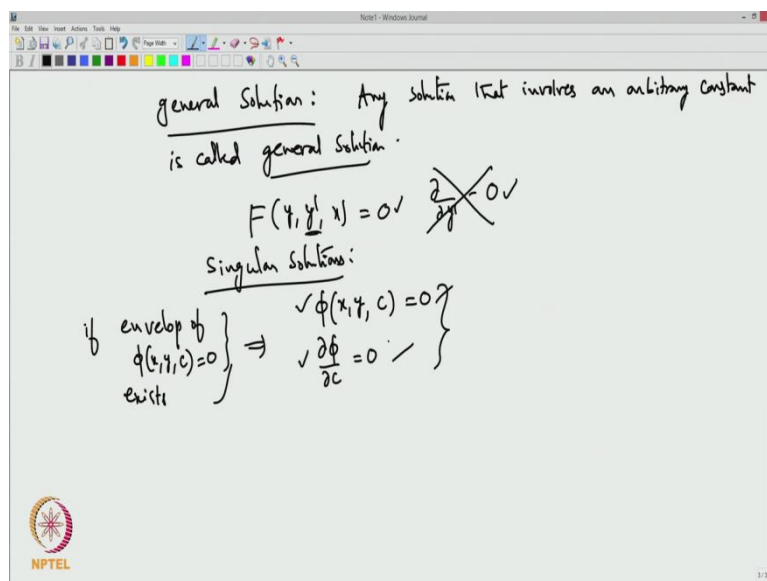 Note1 - Windows Journal
File Edit View Insert Actions Tools Help
Page Width
B I
general Solution: Any solution that involves an arbitrary constant
is called general solution.
F(y, y', x) = 0 ✓ ∂/∂y' = 0 ✓
Singular Solutions:
if envelop of
φ(x,y,c)=0
exists
⇒
✓ φ(x,y,c) = 0
✓ ∂φ/∂c = 0
NPTEL
3/3